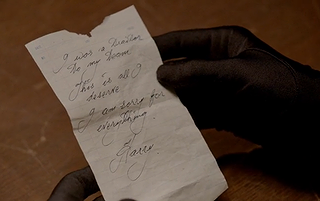 I was a traitor
to my team
This is all I
deserve
I am sorry for
everything.
Harry